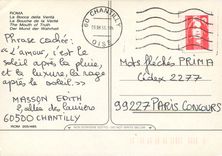 ROMA
La Bocca della Verità
La Bouche de la Vérité
The Mouth of Truth
Der Mund der Wahrheit
60 CHANTILLY
OISE
Phrase cachée :
"L'amour, c'est le
soleil après la pluie,
et la luxure, l'orage
après le soleil."
MASSON EDITH
allée des lauriers
60500 CHANTILLY
Mots fléchés PRIMA
Cédex 2277
99227 PARIS CONCOURS